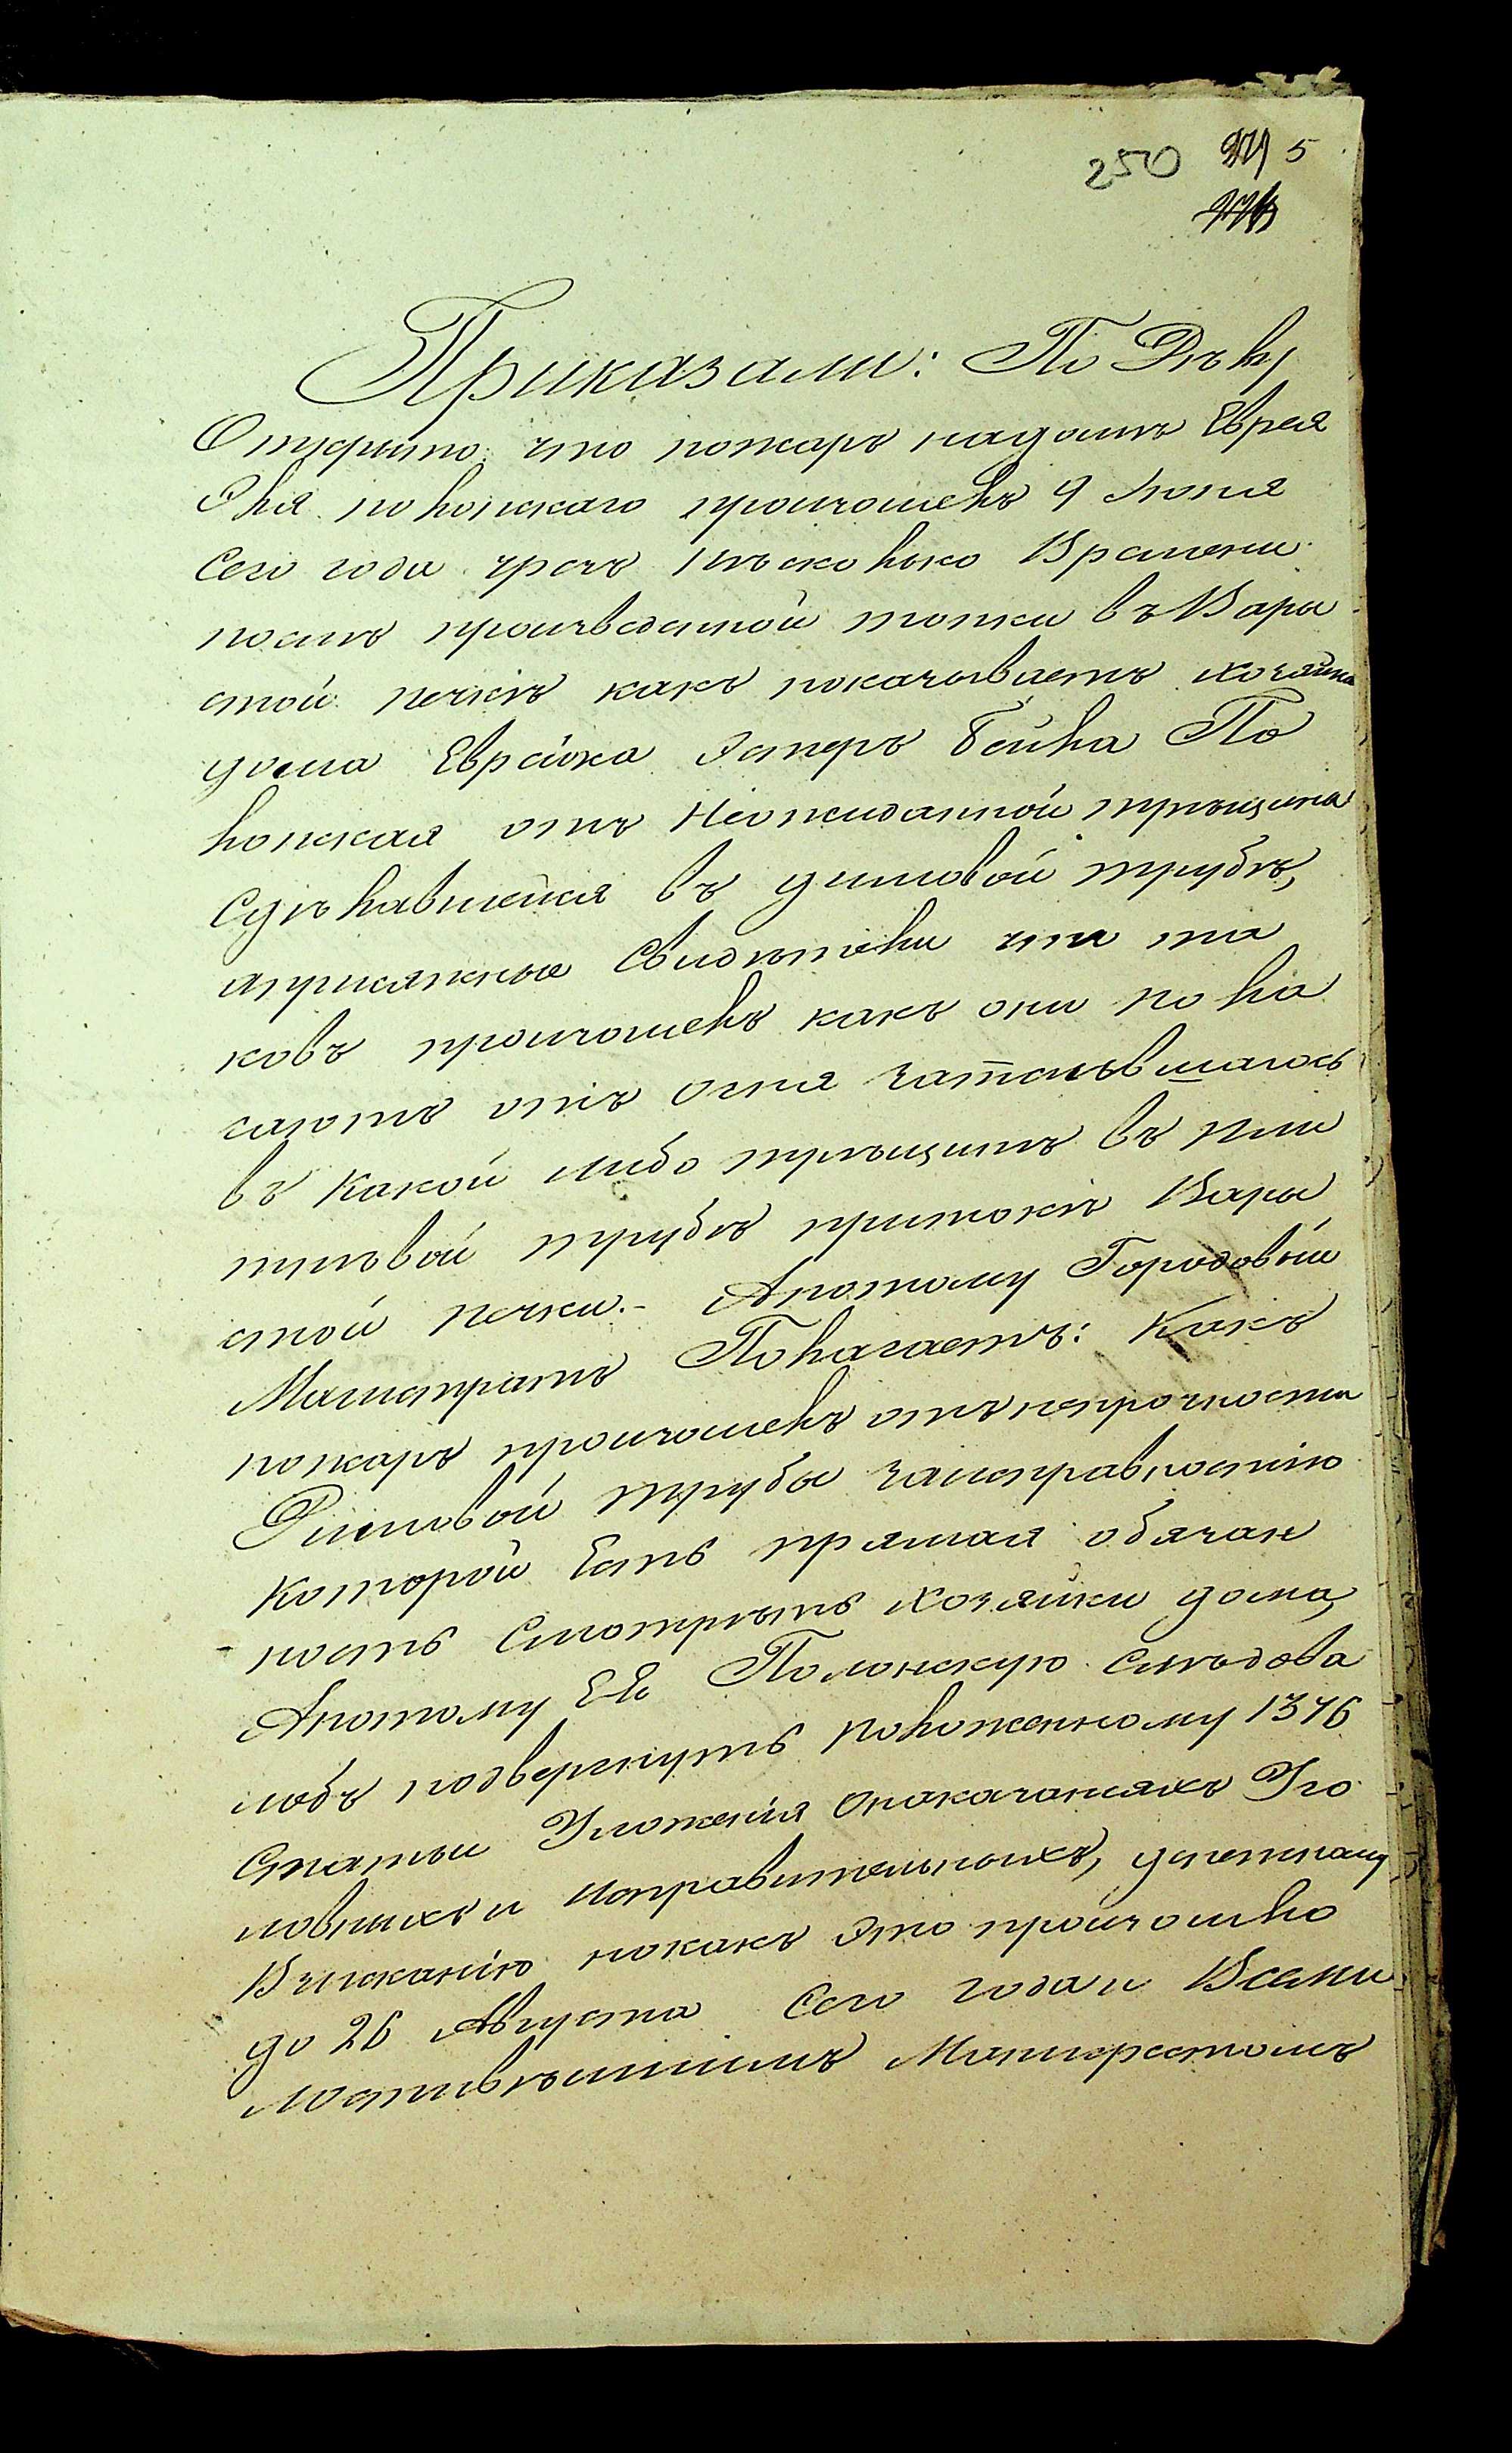 250 5
Приказали: По Дѣлу
Открыто: что пожаръ надомѣ Еврея
Эля Полонскаго произошелъ 9 Июня
Сего года чрезъ нѣсколько Времени
послѣ произведенной топки въ Вари
стой печкѣ какъ показываетъ хозяйка
дома Еврейка Эстеръ Бейла По
лонская отъ Неожиданной трѣщины
Сдѣлавшейся въ дымовой трубѣ,
априсяжные Свидѣтели что та
ковъ произошелъ какъ они пола
гаютъ отъ огня затаевшагось
въ Какой либо трѣщинѣ въ
дымовой трубѣ притокѣ Вари
стой печки.- Апотому Городовый
Магистратъ Полагаетъ: Какъ
пожаръ произошелъ отънепрочности
Дымовой трубы заисправностію
Которой Есть прямая обязан
ность Смотрѣть хозяйки дома,
Апотому Её Полонскую слѣдова
лобъ подвергнуть положенному 1376
Статьи Уложенія Онаказаніяхъ Уго
ловныхъ и Исправительныхъ, денежному
Взысканію нокакъ Это произошло
до 26 Августа Сего года и Всеми
лостивѣйшимъ Манифестомъ